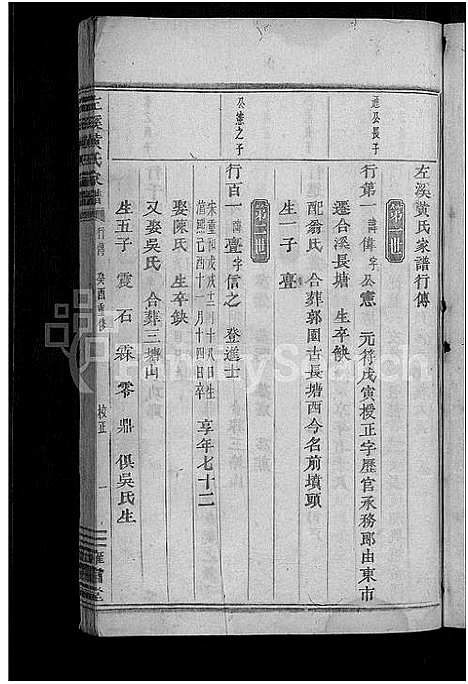 左溪黃氏家譜行傳
遷公長子
行第一 諱傅字公憲 元符戊寅授正字歷官承務郎由東市
遷合溪長塘 生卒缺
配翁氏 合葬郭園古長塘西今名前墳頭
生一子 亶
公憲之子
行百一 諱亶字信之 登進士
宋重和戊戌十二月十八日生
淳熙己酉十一月十四日卒 享年七十二
娶陳氏 生卒缺
又娶吳氏 合葬三塘山
生五子 震 石 霖 零 鼎 俱吳氏生
左溪黃氏家譜 行傳 癸酉重修 校正 一
FamilySearch